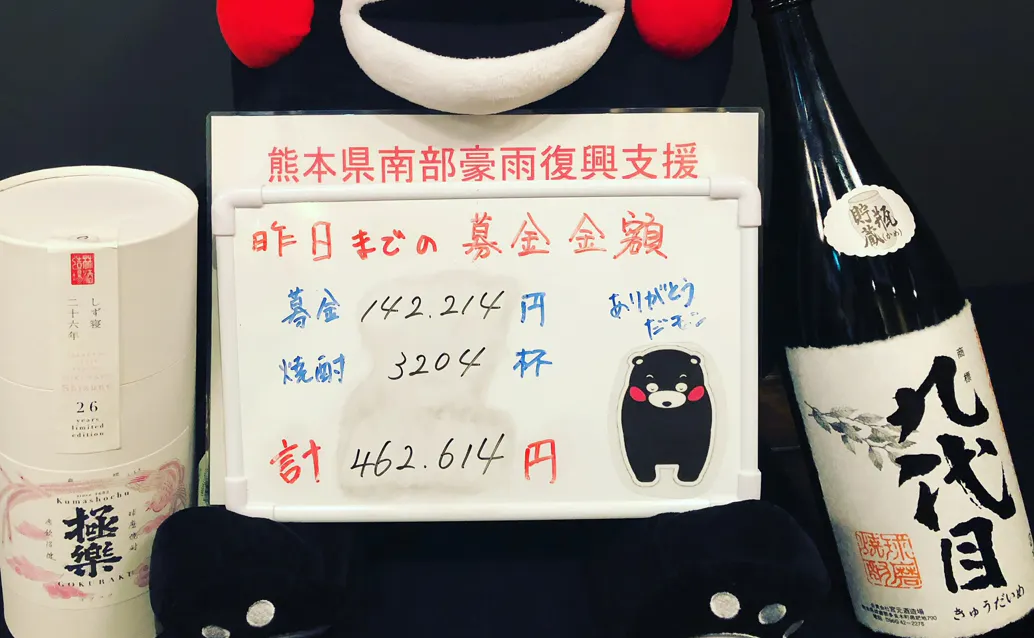 熊本県南部豪雨復興支援
昨日までの募金金額
募金 142.214円
焼酎 3204杯
計 462.614円
ありがとう
だモン
しず寝
二十六年
26
years
limited
edition
Kumashochu
極楽
球磨焼酎
GOKURAKU
貯蔵
瓶(かめ)
商標
九代目
きゅうだいめ
球磨
焼酎